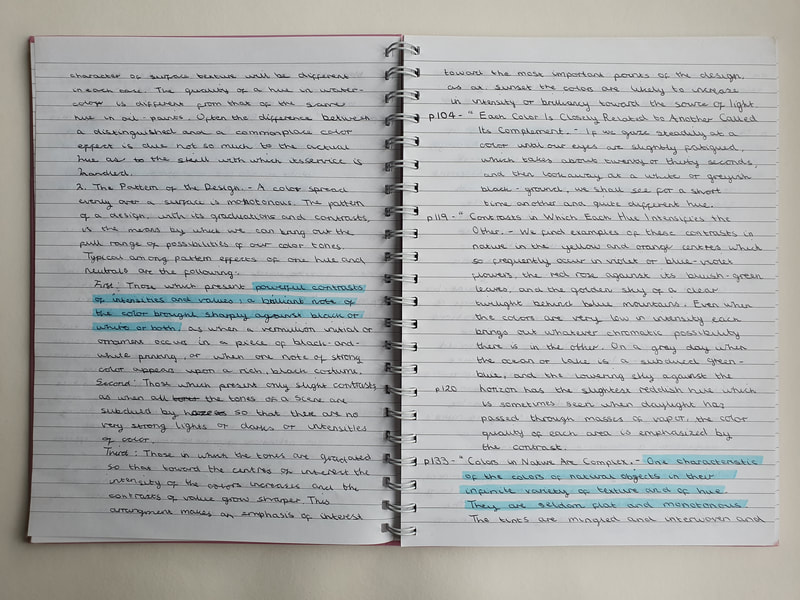 character of surface texture will be different
in each case. The quality of a hue in water-
color is different from that of the same
hue in oil-paints. Often the difference between
a distinguished and a commonplace color
effect is due not so much to the actual
hue as to the skill with which its service is
handled.
2. The Pattern of the Design. - A color spread
evenly over a surface is monotonous. The pattern
of a design, with its graduations and contrasts,
is the means by what we can bring out the
full range of possibilities of our color tones.
Typical among pattern effects of one hue and
neutrals are the following:
First: Those which present powerful contrasts
of intensities and values; a brilliant note of
the color brought sharply against black or
white or both, as when a vermilion initial or
ornament occurs in a piece of black-and-
white printing, or when one note of strong
color appears upon a rich, black costume.
Second: Those which present only slight contrasts
as when all the tones of a scene are
subdued by so that there are no
very strong lights or darks or intensities
of color.
Third: Those in which the tones are graduated
so that toward the centres of interest the
intensity of the colors increases and the
contrasts of value grow sharper. This
arrangement makes an emphasis of interest
toward the most important points of the design,
as at sunset the colors are likely to increase
in intensity or brilliancy toward the source of light.
p.104 - "Each Color Is Closely Related to Another Called
Its Complement. - If we gaze steadily at a
color until our eyes are slightly fatigued,
which takes about twenty or thirty seconds,
and then look away at a white or greyish
back-ground, we shall see for a short
time another and quite different hue.
p.119 - "Contrasts in Which Each Hue Intensifies the
Other. - We find examples of these contrasts in
nature in the yellow and orange centres which
so frequently occur in violet or blue-violet
flowers, the red rose against its bluish-green
leaves, and the golden sky of a clear
twilight behind blue mountains. Even when
the colors are very low in intensity each
brings out whatever chromatic possibility
there is in the other. On a grey day when
the ocean or lake is a subdued green-
blue, and the lowering sky against the
p.120 horizon has the slightest reddish hue which
is sometimes seen when daylight has
passed through masses of vapor, the color
quality of each area is emphasized by
the contrast.
p.133 - "Colors in Nature Are Complex. - One characteristic
of the colors of natural objects is their
infinite variety of texture and of hue.
They are seldom flat and monotonous.
The tints are mingled and interwoven and